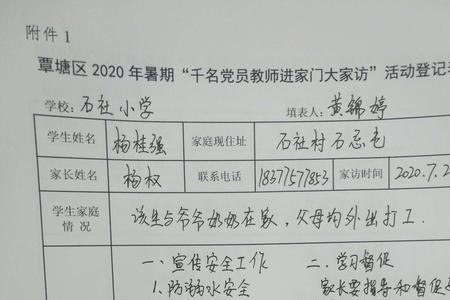 附件1
覃塘区2020年暑期“千名党员教师进家门大家访”活动登记
学校：石社小学 填表人：黄锦婷
学生姓名 杨桂强 家庭现住址 石社村石忌屯
家长姓名 杨权 联系电话 18377577853 家访时间 2020.7.2
学生家庭情况 该生与爷爷奶奶在家，父母均外出打工.
一、宣传安全工作 二、学习督促
1.防溺水安全 家长要指导和督促